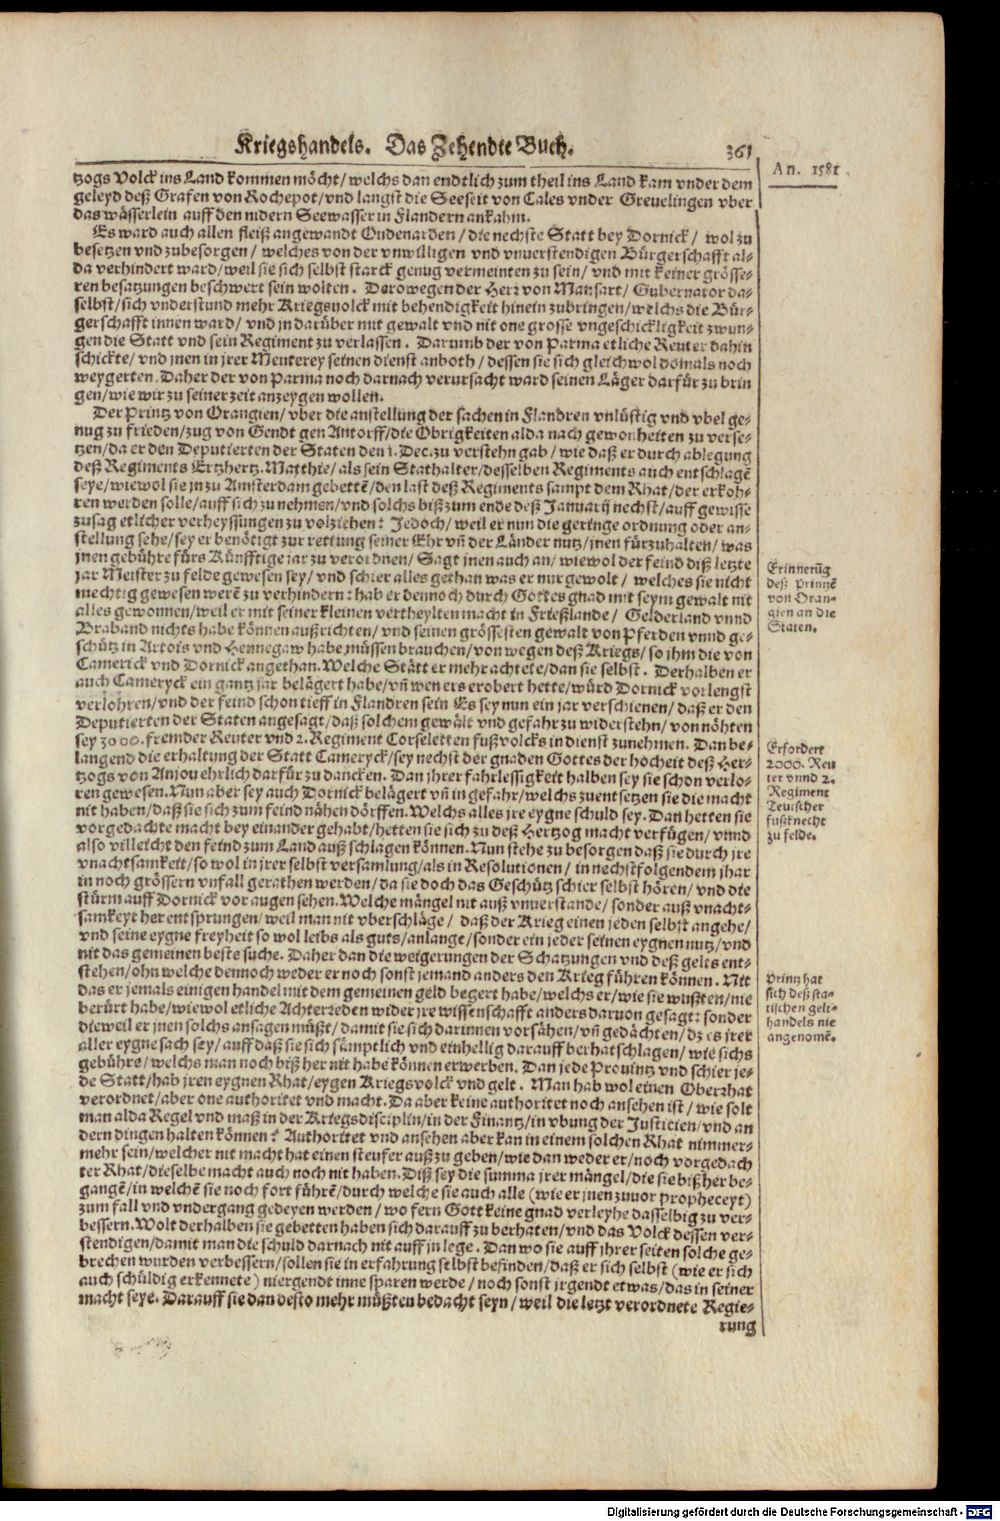 Kriegshandels. Das Zehendte Buch. 361
An. 1581.
tzogs Volck ins Land kommen möcht/ welchs dan endtlich zum theil ins Land kam vnder dem
geleyd deß Grafen von Rochepot/ vnd langst die Seeseit von Cales vnder Greuelingen vber
das wässerlein auff den nidern Seewasser in Flandern ankahm.
Es ward auch allen fleiß angewandt Oudenarden/ die nechste Statt bey Dornick/ wol zu
besetzen vnd zubesorgen/ welches von der vnwilligen vnd vnuerstendigen Bürgerschafft al-
da verhindert ward/ weil sie sich selbst starck genug vermeinten zu sein/ vnd mit keiner grösse-
ren besatzungen beschwert sein wolten. Derowegen der Herr von Mansart/ Gubernator da-
selbst/ sich vnderstund mehr Kriegsvolck mit behendigkeit hinein zubringen/ welchs die Bür-
gerschafft innen ward/ vnd jn darüber mit gewalt vnd nit one grosse vngeschickligkeit zwun-
gen die Statt vnd sein Regiment zu verlassen. Darumb der von Parma etliche Reuter dahin
schickte/ vnd jnen in jrer Meuterey seinen dienst anboth/ dessen sie sich gleichwol domals noch
weygerten. Daher der von Parma noch darnach verursacht ward seinen Läger darfür zu brin
gen/ wie wir zu seiner zeit anzeygen wollen.
Der Printz von Orangien/ vber die anstellung der sachen in Flandren vnlüstig vnd vbel ge-
nug zu frieden/ zug von Gendt gen Antorff/ die Obrigkeiten alda nach gewonheiten zu verse-
tzen/ da er den Deputierten der Staten den 1. Dec. zu verstehn gab/ wie daß er durch ablegung
deß Regiments Ertzhertz. Matthie/ als sein Stathalter/ desselben Regiments auch entschlagē
seye/ wiewol sie jn zu Amsterdam gebettē/ den last deß Regiments sampt dem Rhat/ der erkoh-
ren werden solle/ auff sich zu nehmen/ vnd solchs biß zum ende deß Januarij nechst/ auff gewisse
zusag etlicher verheyssungen zu volziehen: Jedoch/ weil er nun die geringe ordnung oder an-
stellung sehe/ sey er benötigt zur rettung seiner Ehr vñ der Länder nutz/ jnen fürzuhalten/ was
jnen gebühre fürs Künfftige jar zu verordnen/ Sagt jnen auch an/ wiewol der feind diß letzte
jar Meister zu felde gewesen sey/ vnd schier alles gethan was er nur gewolt/ welches sie nicht
mechtig gewesen werē zu verhindern: hab er dennoch durch Gottes gnad mit seym gewalt nit
alles gewonnen/ weil er mit seiner kleinen vertheylten macht in Frießlande/ Gelderland vnnd
Braband nichts habe können außrichten/ vnd seinen grössesten gewalt von Pferden vnnd ge-
schütz in Artois vnd Hennegaw habe müssen brauchen/ von wegen deß Kriegs/ so jhm die von
Camerick vnd Dornick angethan. Welche Stätt er mehr achtete/ dan sie selbst. Derhalben er
auch Cameryck ein gantz jar belägert habe/ vñ wen ers erobert hette/ würd Dornick vorlengst
verlohren/ vnd der feind schon tieff in Flandren sein Es sey nun ein jar verschienen/ daß er den
Deputierten der Staten angesagt/ daß solchem gewalt vnd gefahr zu widerstehn/ von nöhten
sey 3000. fremder Reuter vnd 2. Regiment Corseletten fußvolcks in dienst zunehmen. Dan be-
langend die erhaltung der Statt Cameryck/ sey nechst der gnaden Gottes der hocheit deß Her-
tzogs von Anjou ehrlich darfür zu dancken. Dan jhrer fahrlessigkeit halben sey sie schon verlo-
ren gewesen. Nun aber sey auch Dornick belägert vñ in gefahr/ welchs zuentsetzen sie die macht
nit haben/ daß sie sich zum feind nähen dörffen. Welchs alles jre eygne schuld sey. Dan hetten sie
vorgedachte macht bey einander gehabt/ hetten sie sich zu deß Hertzog macht verfügen/ vnnd
also villeicht den feind zum Land auß schlagen können. Nun stehe zu besorgen daß sie durch jre
vnachtsamkeit/ so wol in jrer selbst versamlung/ als in Resolutionen/ in nechstfolgendem jhar
in noch grössern vnfall gerathen werden/ da sie doch das Geschütz schier selbst hören/ vnd die
stürm auff Dornick vor augen sehen. Welche mängel nit auß vnuerstande/ sonder auß vnacht-
samkeyt her entsprungen/ weil man nit vberschläge/ daß der Krieg einen jeden selbst angehe/
vnd seine eygne freyheit so wol leibs als guts/ anlange/ sonder ein jeder seinen eygnen nutz/ vnd
nit das gemeinen beste suche. Daher dan die weigerungen der Schatzungen vnd deß gelts ent-
stehen/ ohn welche dennoch weder er noch sonst jemand anders den Krieg führen können. Nit
das er jemals einigen handel mit dem gemeinen geld begert habe/ welchs er/ wie sie wußten/ nie
berürt habe/ wiewol etliche Achterreden wider jre wissenschafft anders daruon gesagt: sonder
dieweil er jnen solchs ansagen müßt/ damit sie sich darinnen vorsähen/ vñ gedächten/ dz es jrer
aller eygne sach sey/ auff daß sie sich sämptlich vnd einhellig darauff berhatschlagen/ wie sichs
gebühre/ welchs man noch biß her nit habe können erwerben. Dan jede Prouintz vnd schier je-
de Statt/ hab jren eygnen Rhat/ eygen Kriegsvolck vnd gelt. Man hab wol einen Oberrhat
verordnet/ aber one authoritet vnd macht. Da aber keine authoritet noch ansehen ist/ wie solt
man alda Regel vnd maß in der Kriegsdisciplin/ in der Finantz/ in vbung der Justicien/ vnd an
dern dingen halten können? Authoritet vnd ansehen aber kan in einem solchen Rhat nimmer-
mehr sein/ welcher nit macht hat einen steufer auß zu geben/ wie dan weder er/ noch vorgedach
ter Rhat/ dieselbe macht auch noch nit haben. Diß sey die summa jrer mängel/ die sie bißher be-
gangē/ in welchē sie noch fort führē/ durch welche sie auch alle (wie er jnen zuuor propheceyt)
zum fall vnd vndergang gedeyen werden/ wo fern Gott keine gnad verleyhe dasselbig zu ver-
bessern. Wolt derhalben sie gebetten haben sich darauff zu berhaten/ vnd das Volck dessen ver-
stendigen/ damit man die schuld darnach nit auff jn lege. Dan wo sie auff jhrer seiten solche ge-
brechen wurden verbessern/ sollen sie in erfahrung selbst befinden/ daß er sich selbst (wie er sich
auch schüldig erkennete) niergendt inne sparen werde/ noch sonst jrgendt etwas/ das in seiner
macht seye. Darauff sie dan desto mehr müßten bedacht seyn/ weil die letzt verordnete Regie-
rung
Erinnerūg
deß Printzē
von Oran-
gien an die
Staten.
Erfordert
2000. Reu
ter vnnd 2.
Regiment
Teutscher
fußknecht
zu felde.
Printz hat
sich deß sta-
tischen gelt-
handels nie
angenomē.
Digitalisierung gefördert durch die Deutsche Forschungsgemeinschaft - DFG